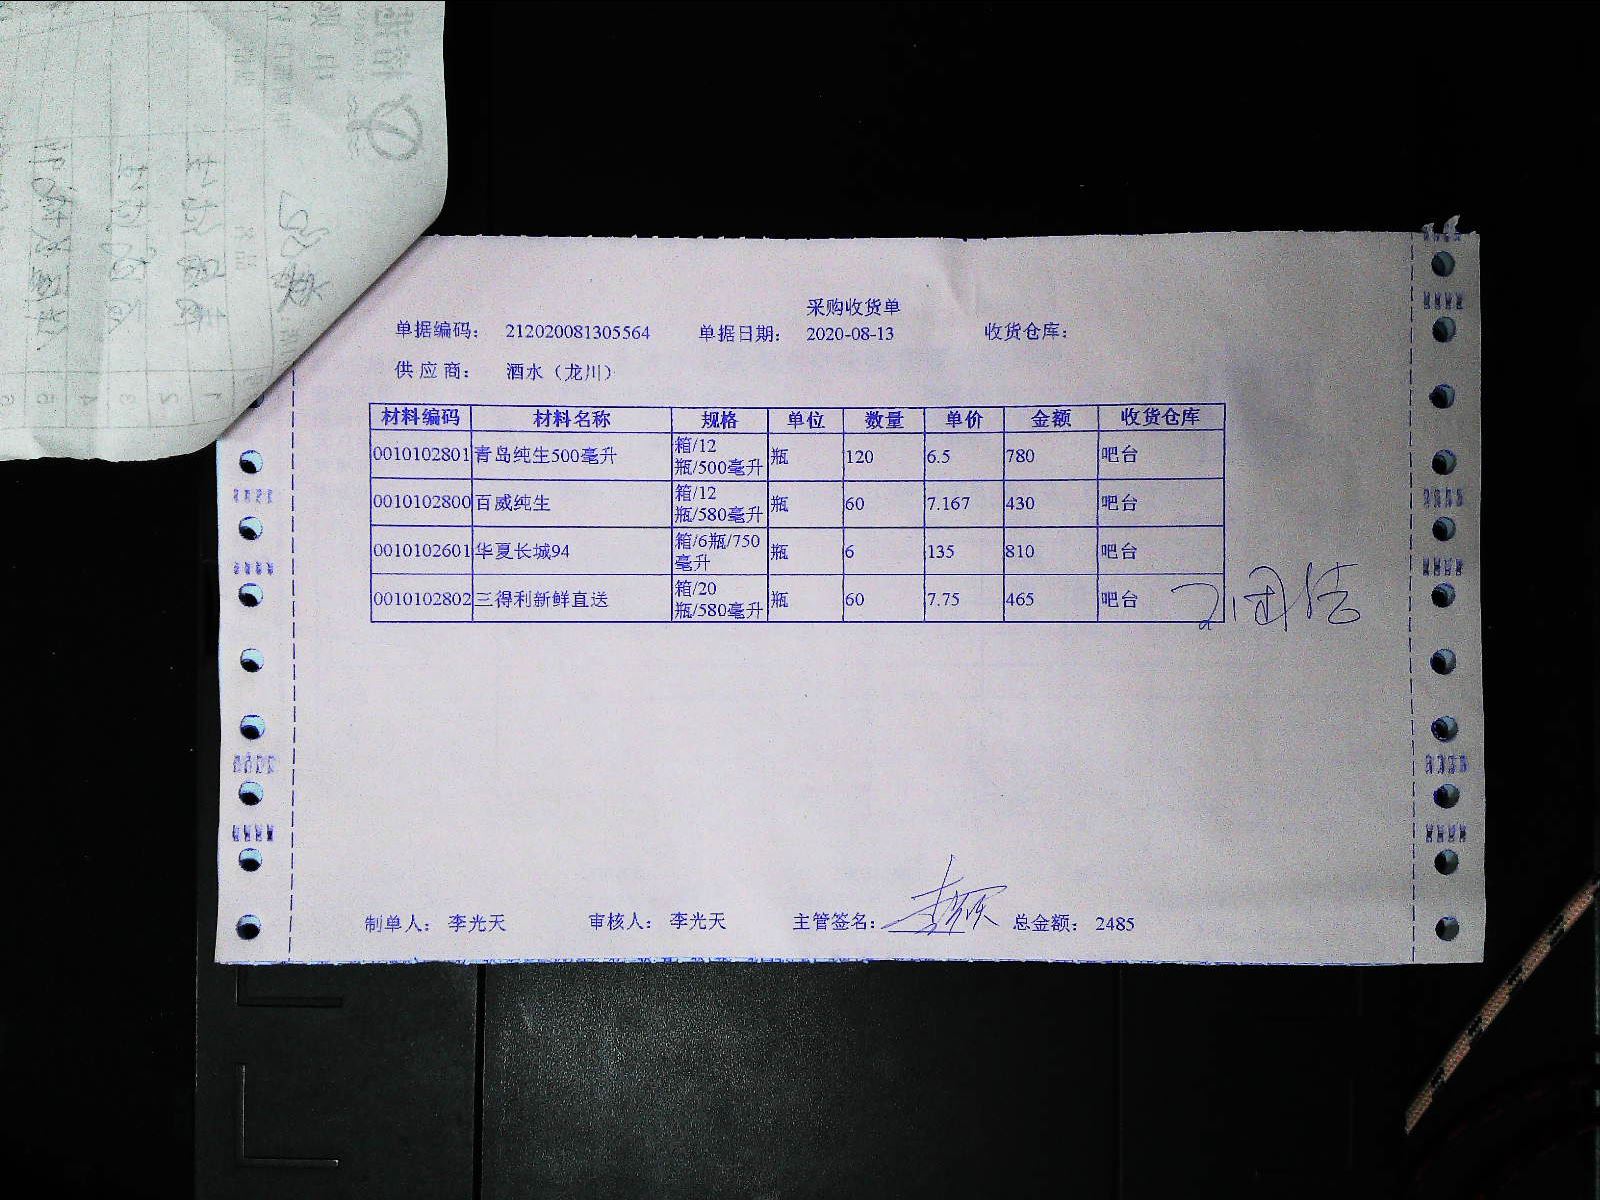 采购收货单
单据编码： 212020081305564 单据日期： 2020-08-13 收货仓库：
供 应 商： 酒水（龙川）
材料编码 材料名称 规格 单位 数量 单价 金额 收货仓库
0010102801 青岛纯生500毫升 箱/12瓶/500毫升 瓶 120 6.5 780 吧台
0010102800 百威纯生 箱/12瓶/580毫升 瓶 60 7.167 430 吧台
0010102601 华夏长城94 箱/6瓶/750毫升 瓶 6 135 810 吧台
0010102802 三得利新鲜直送 箱/20瓶/580毫升 瓶 60 7.75 465 吧台
制单人： 李光天 审核人： 李光天 主管签名： 总金额： 2485